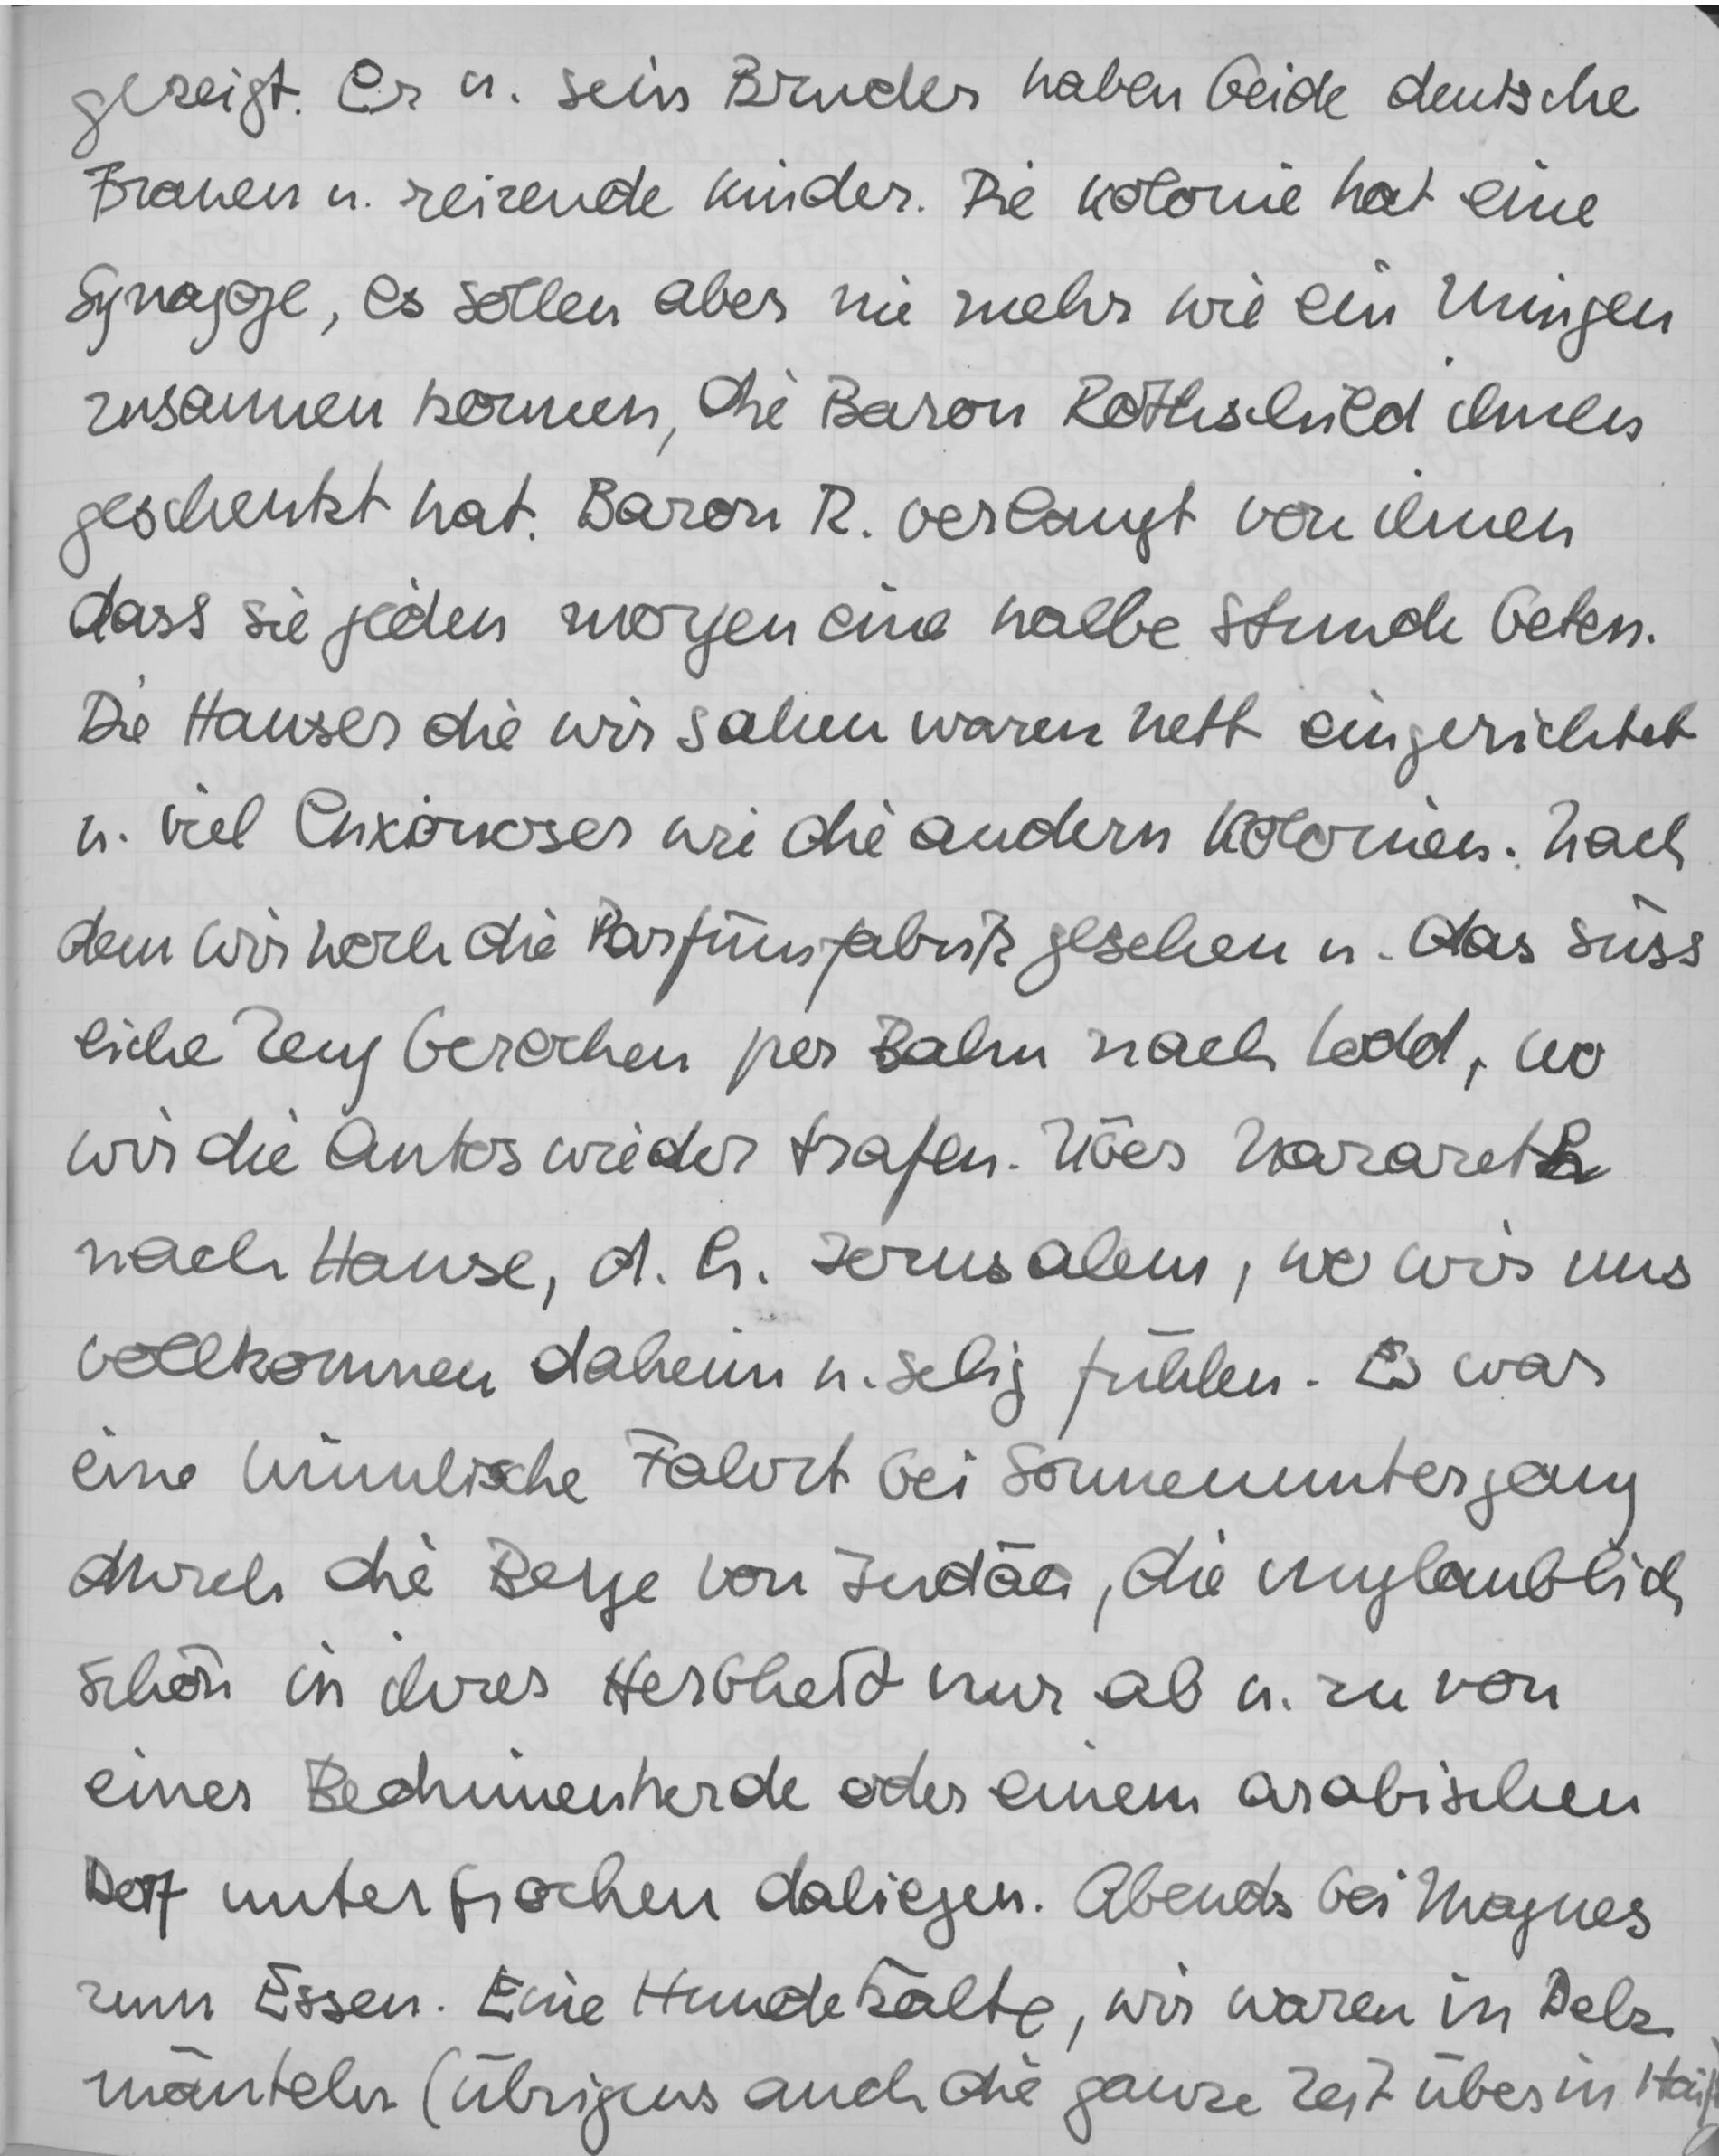 gezeigt. Er u. sein Bruder haben beide deutsche
Frauen u. reizende Kinder. Die Kolonie hat eine
Synagoge, es sollen aber nie mehr wie ein Mingen
zusammen kommen, die Baron Rothschild ihnen
geschenkt hat. Baron R. verlangt von ihnen
dass sie jeden morgen eine halbe Stunde beten.
Die Hauser die wir sahen waren nett eingerichtet
u. viel luxoriöser wie die andern Kolonien. Nach
dem wir noch die Parfümfabrik gesehen u. das süss
liche Zeug berochen per Bahn nach Lodd, wo
wir die Autos wieder trafen. Über Nazareth
nach Hause, d. h. Jerusalem, wo wir uns
vollkommen daheim u. selig fühlen. Es war
eine himmlische Fahrt bei Sonnenuntergang
durch die Berge von Judäa, die unglaublich
schön in ihrer Herbheit nur ab u. zu von
einer Beduinenherde oder einem arabischen
Dorf unterbrochen daliegen. Abends bei Magnes
zum Essen. Eine Hundekälte, wir waren in Pelz
mänteln (übrigens auch die ganze Zeit über in